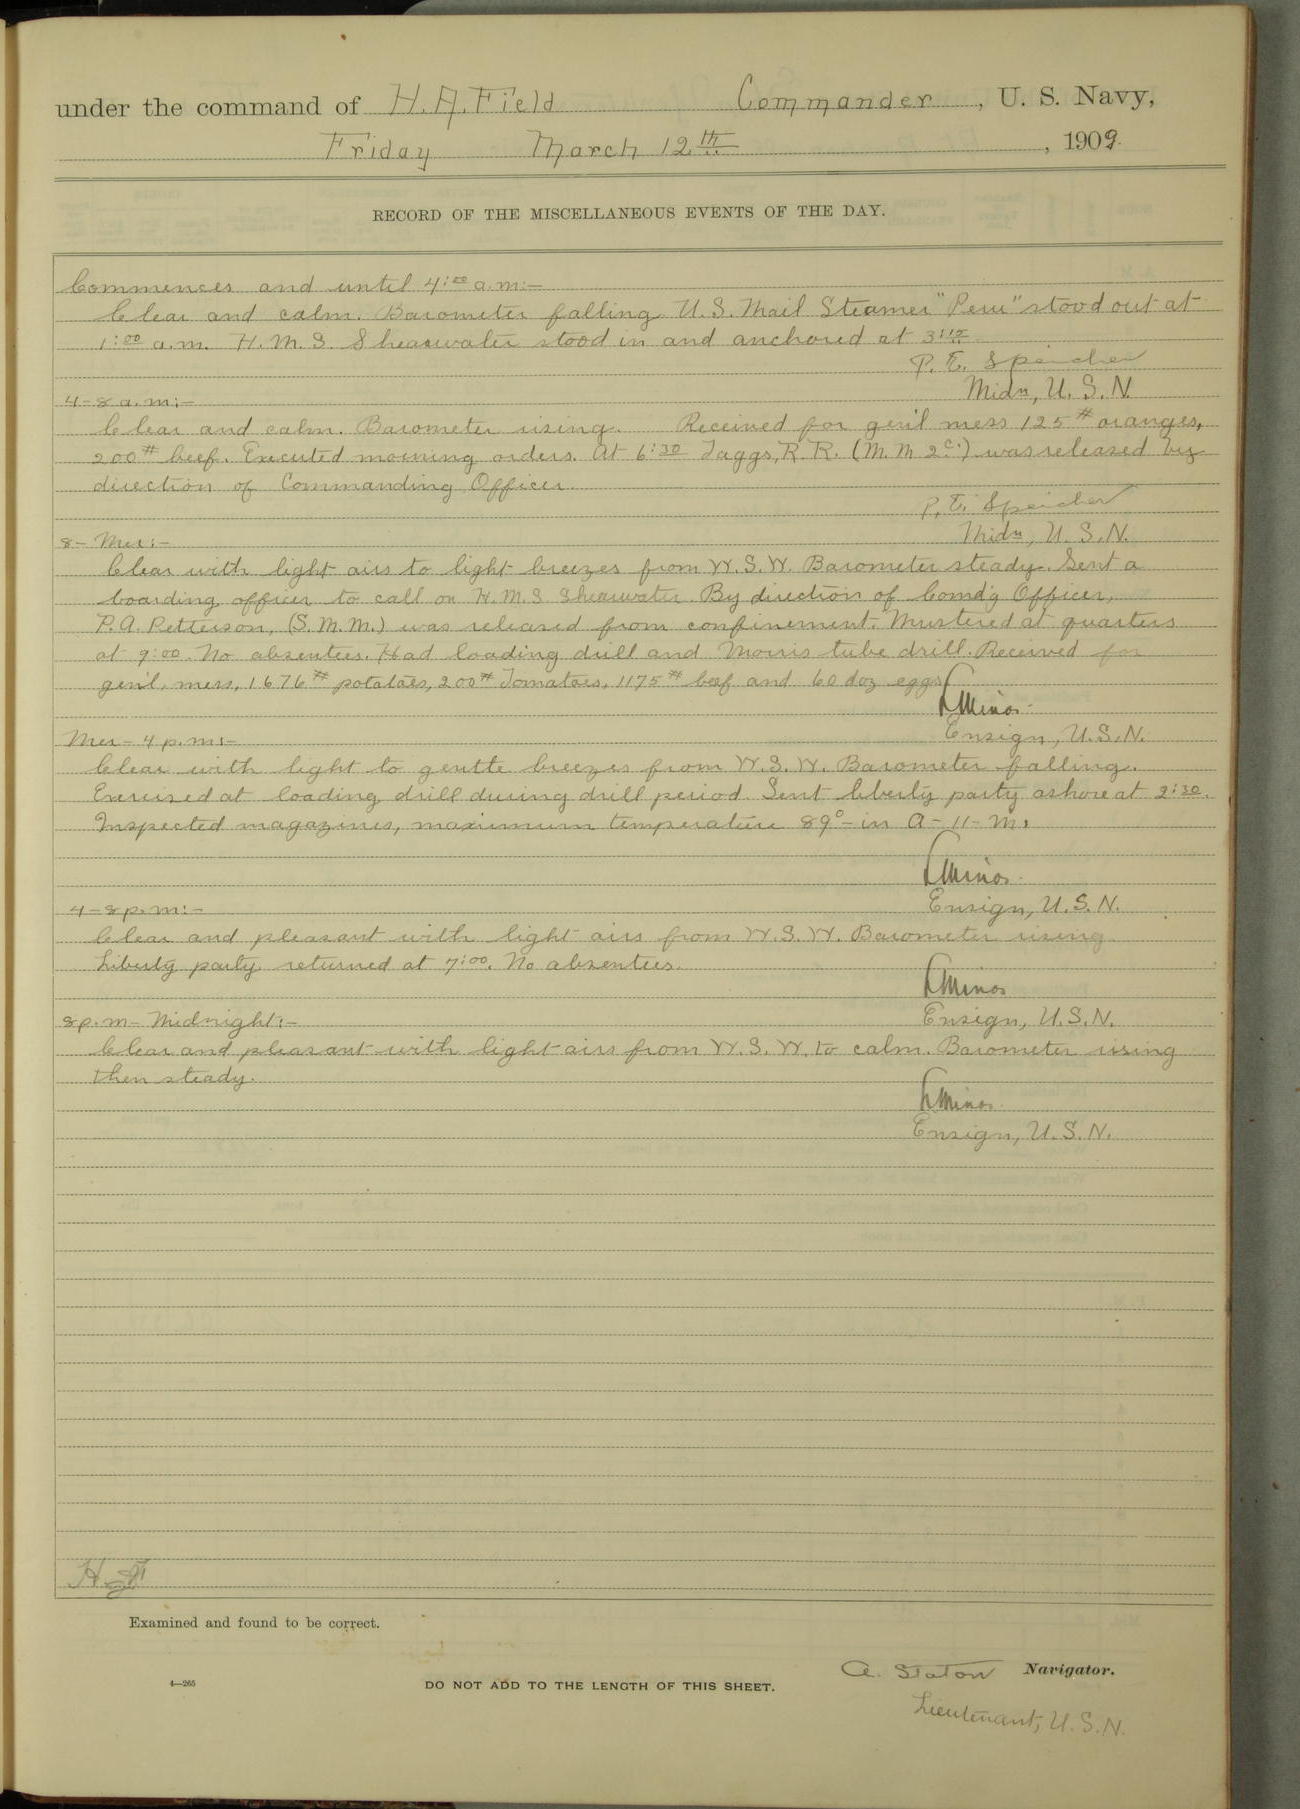 under the command of H. A. Field Commander, U. S. Navy,
Friday March 12th, 1909.
RECORD OF THE MISCELLANEOUS EVENTS OF THE DAY.
Commences and until 4:00 a.m:-
Clear and calm. Barometer falling U.S. Mail Steamer "Peru" stood out at
1:00 a.m. H.M.S. Shearwater stood in and anchored at 3:15.
P. E. Speicher
Midn, U.S.N.
4-8 a.m:-
Clear and calm. Barometer rising. Received for gen'l mess 125# oranges,
200# beef. Executed morning orders. At 6:30 Taggs, R.R. (M.M 2c.) was released by
direction of Commanding Officer
P. E. Speicher
Midn, U.S.N.
8- Mer:-
Clear with light airs to light breezes from W.S.W. Barometer steady. Sent a
boarding officer to call on H.M.S Shearwater. By direction of Comd'g Officer,
P.A. Petterson, (S.M.M.) was released from confinement. Mustered at quarters
at 9:00. No absentees. Had loading drill and Morris tube drill. Received for
gen'l. mess, 1676# potatoes, 200# Tomatoes, 1175# beef and 60 doz eggs
Minor
Ensign, U.S.N.
Mer- 4 p.m:-
Clear with light to gentle breezes from W.S.W. Barometer falling.
Exercised at loading drill during drill period. Sent liberty party ashore at 2:30.
Inspected magazines, maximum temperature 89°- in A-11-M.
Minor
Ensign, U.S.N.
4-8 p.m:-
Clear and pleasant with light airs from W.S.W. Barometer rising
Liberty party returned at 7:00. No absentees.
Minor
Ensign, U.S.N.
8p.m- Midnight:-
Clear and pleasant with light airs from W.S.W. to calm. Barometer rising
then steady.
Minor
Ensign, U.S.N.
Examined and found to be correct.
A. Staton Navigator.
4—265
DO NOT ADD TO THE LENGTH OF THIS SHEET.
Lieutenant, U.S.N.